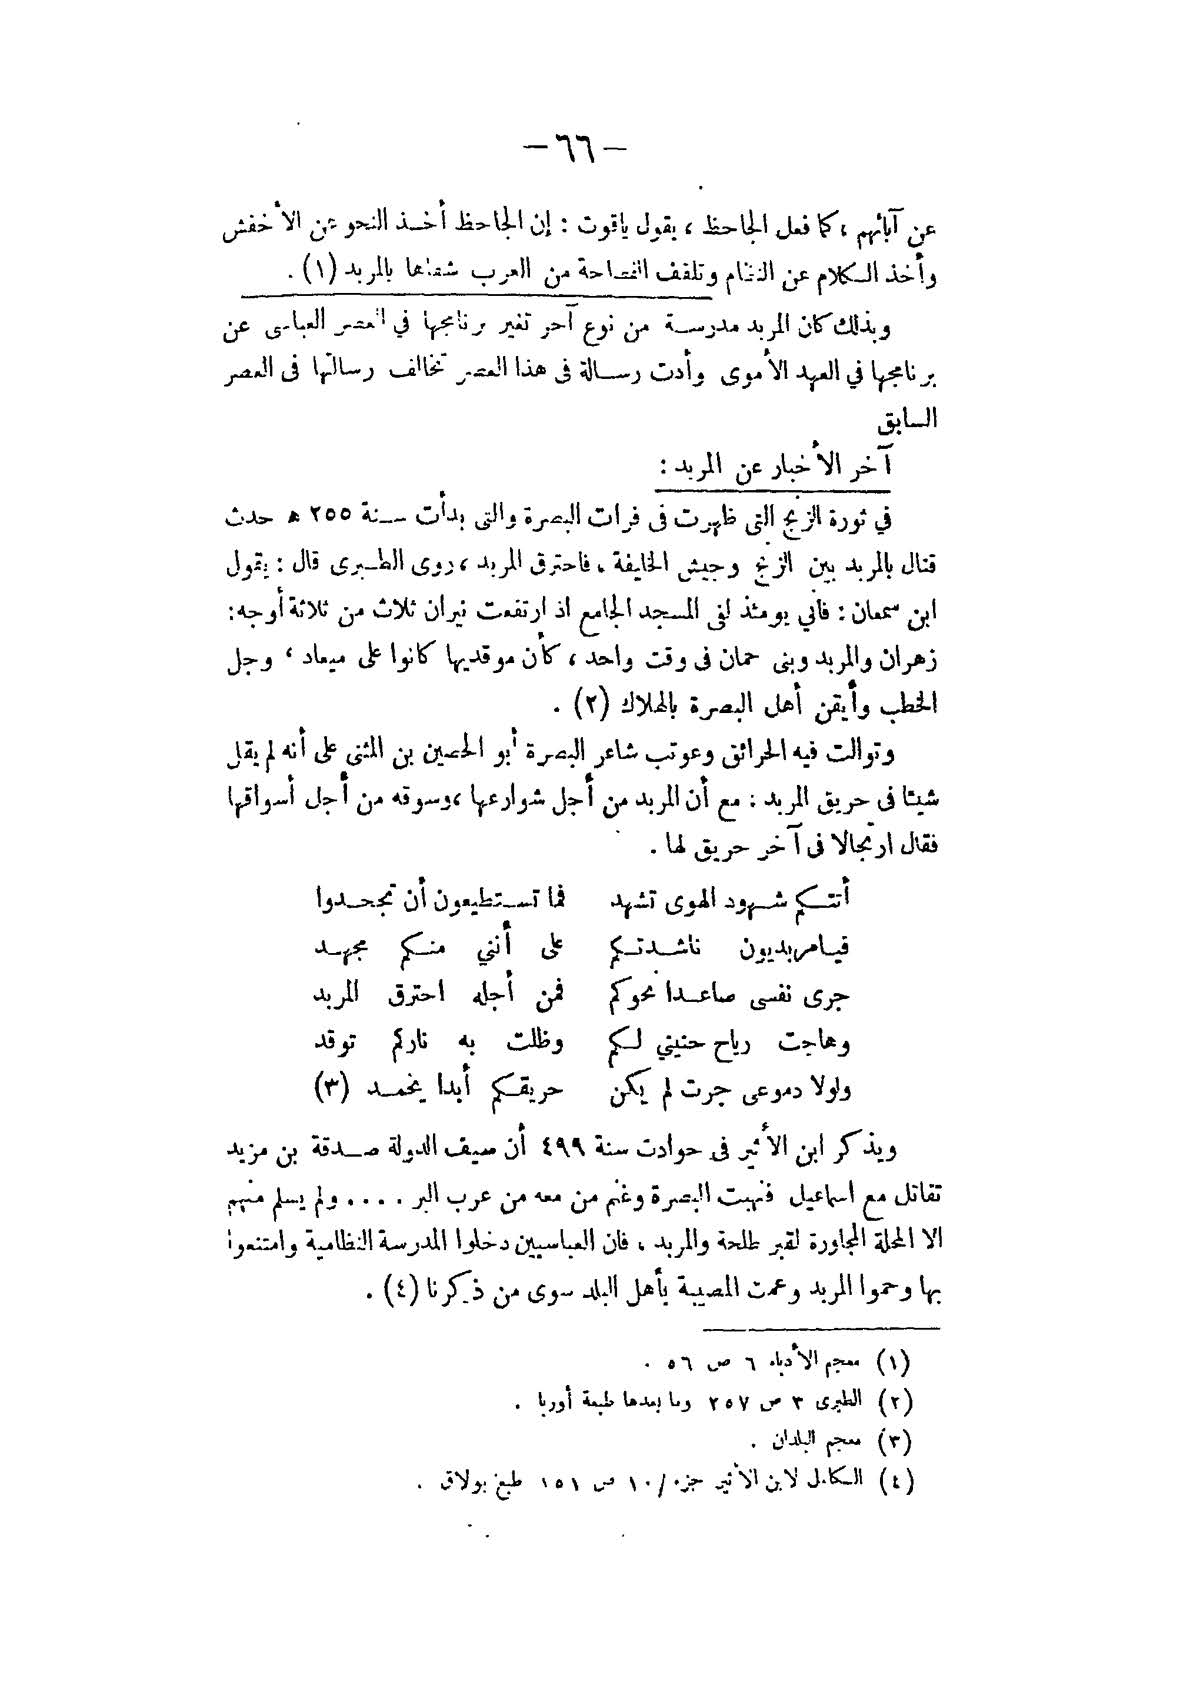 — ٦٦ —
عن آبائهم ، كما فعل الجاحظ ، يقول ياقوت : إن الجاحظ أخذ النحو عن الأخفش
وأخذ الكلام عن النظام وتلقف الفصاحة من العرب شفاها بالمربد (١) .
وبذلك كان المربد مدرسة من نوع آخر تغير برنامجها في العصر العباسى عن
برنامجها في العهد الأموى وأدت رسالة فى هذا العصر تخالف رسالتها فى العصر
السابق
آخر الأخبار عن المربد :
في ثورة الزنج التى ظهرت فى فرات البصرة والتى بدأت سنة ٢٥٥ ه حدث
قتال بالمربد بين الزنج وجيش الخليفة ، فاحترق المربد ، روى الطبرى قال : يقول
ابن سمعان : فأني يومئذ لفى المسجد الجامع اذ ارتفعت نيران ثلاث من ثلاثة أوجه :
زهران والمربد وبنى حمان فى وقت واحد ، كأن موقديها كانوا على ميعاد ، وجل
الخطب وأيقن أهل البصرة بالهلاك (٢) .
وتوالت فيه الحرائق وعوتب شاعر البصرة أبو الحصين بن المثنى على أنه لم يقل
شيئا فى حريق المربد : مع أن المربد من أجل شوارعها ، وسوقه من أجل أسواقها
فقال ارتجالا فى آخر حريق لها .
أتتكم شهود الهوى تشهد فما تستطيعون أن تجحدوا
فيامربديون ناشدتكم على أنني منكم مجهد
جرى نفسى صاعدا نحوكم فمن أجله احترق المربد
وهاجت رياح حنيني لكم وظلت به ناركم توقد
ولولا دموعى جرت لم يكن حريقكم أبدا يخمد (٣)
ويذكر ابن الأثير فى حوادث سنة ٤٩٩ أن سيف الدولة صدقة بن مزيد
تقاتل مع اسماعيل فنهبت البصرة وغنم من معه من عرب البر .... ولم يسلم منهم
الا المحلة المجاورة لقبر طلحة والمربد ، فان العباسيين دخلوا المدرسة النظامية وامتنعوا
بها وحموا المربد وعمت المصيبة بأهل البلد سوى من ذكرنا (٤) .
(١) معجم الأدباء ٦ ص ٥٦ .
(٢) الطبرى ٣ ص ٢٥٧ وما بعدها طبعة أوربا .
(٣) معجم البلدان .
(٤) الكامل لابن الأثير جزء ١٠/ ص ١٥١ طبع بولاق .